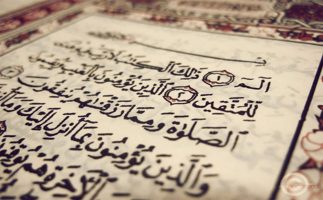 الٓمٓ ١ ذَٰلِكَ ٱلْكِتَٰبُ لَا رَيْبَ
لِّلْمُتَّقِينَ ٢ ٱلَّذِينَ يُؤْمِنُونَ بِٱلْغَيْبِ وَيُقِيمُونَ
ٱلصَّلَوٰةَ وَمِمَّا رَزَقْنَٰهُمْ يُنفِقُونَ
وَٱلَّذِينَ يُؤْمِنُونَ بِمَآ أُنزِلَ إِلَيْكَ وَمَآ
ٱلْءَاخِرَةِ هُمْ يُوقِنُونَ